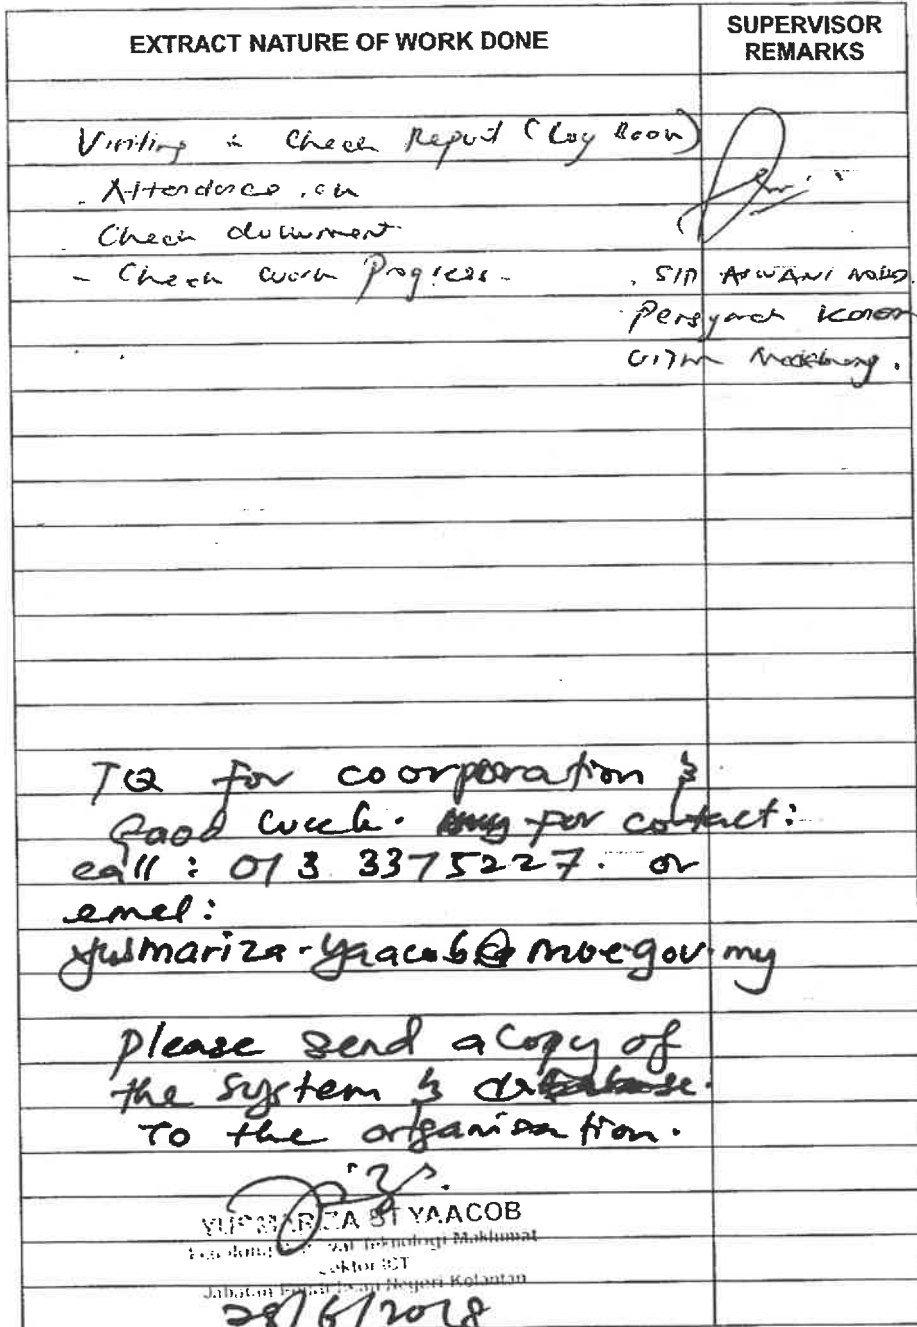 EXTRACT NATURE OF WORK DONE
SUPERVISOR
REMARKS
Visiting & Check Report (Log Book)
- Attendance
- Check document
- Check work Progress -
TQ for coorporation &
Good Luck. for contact:
call : 013 3375227. or
emel:
yusmariza-yaacob@moe.gov.my
please send a copy of
the system & database.
To the organisation.
YUSMARIZA BT YAACOB
Teknologi Maklumat
Sektor ICT
Jabatan Pendidikan Negeri Kelantan
28/6/2018